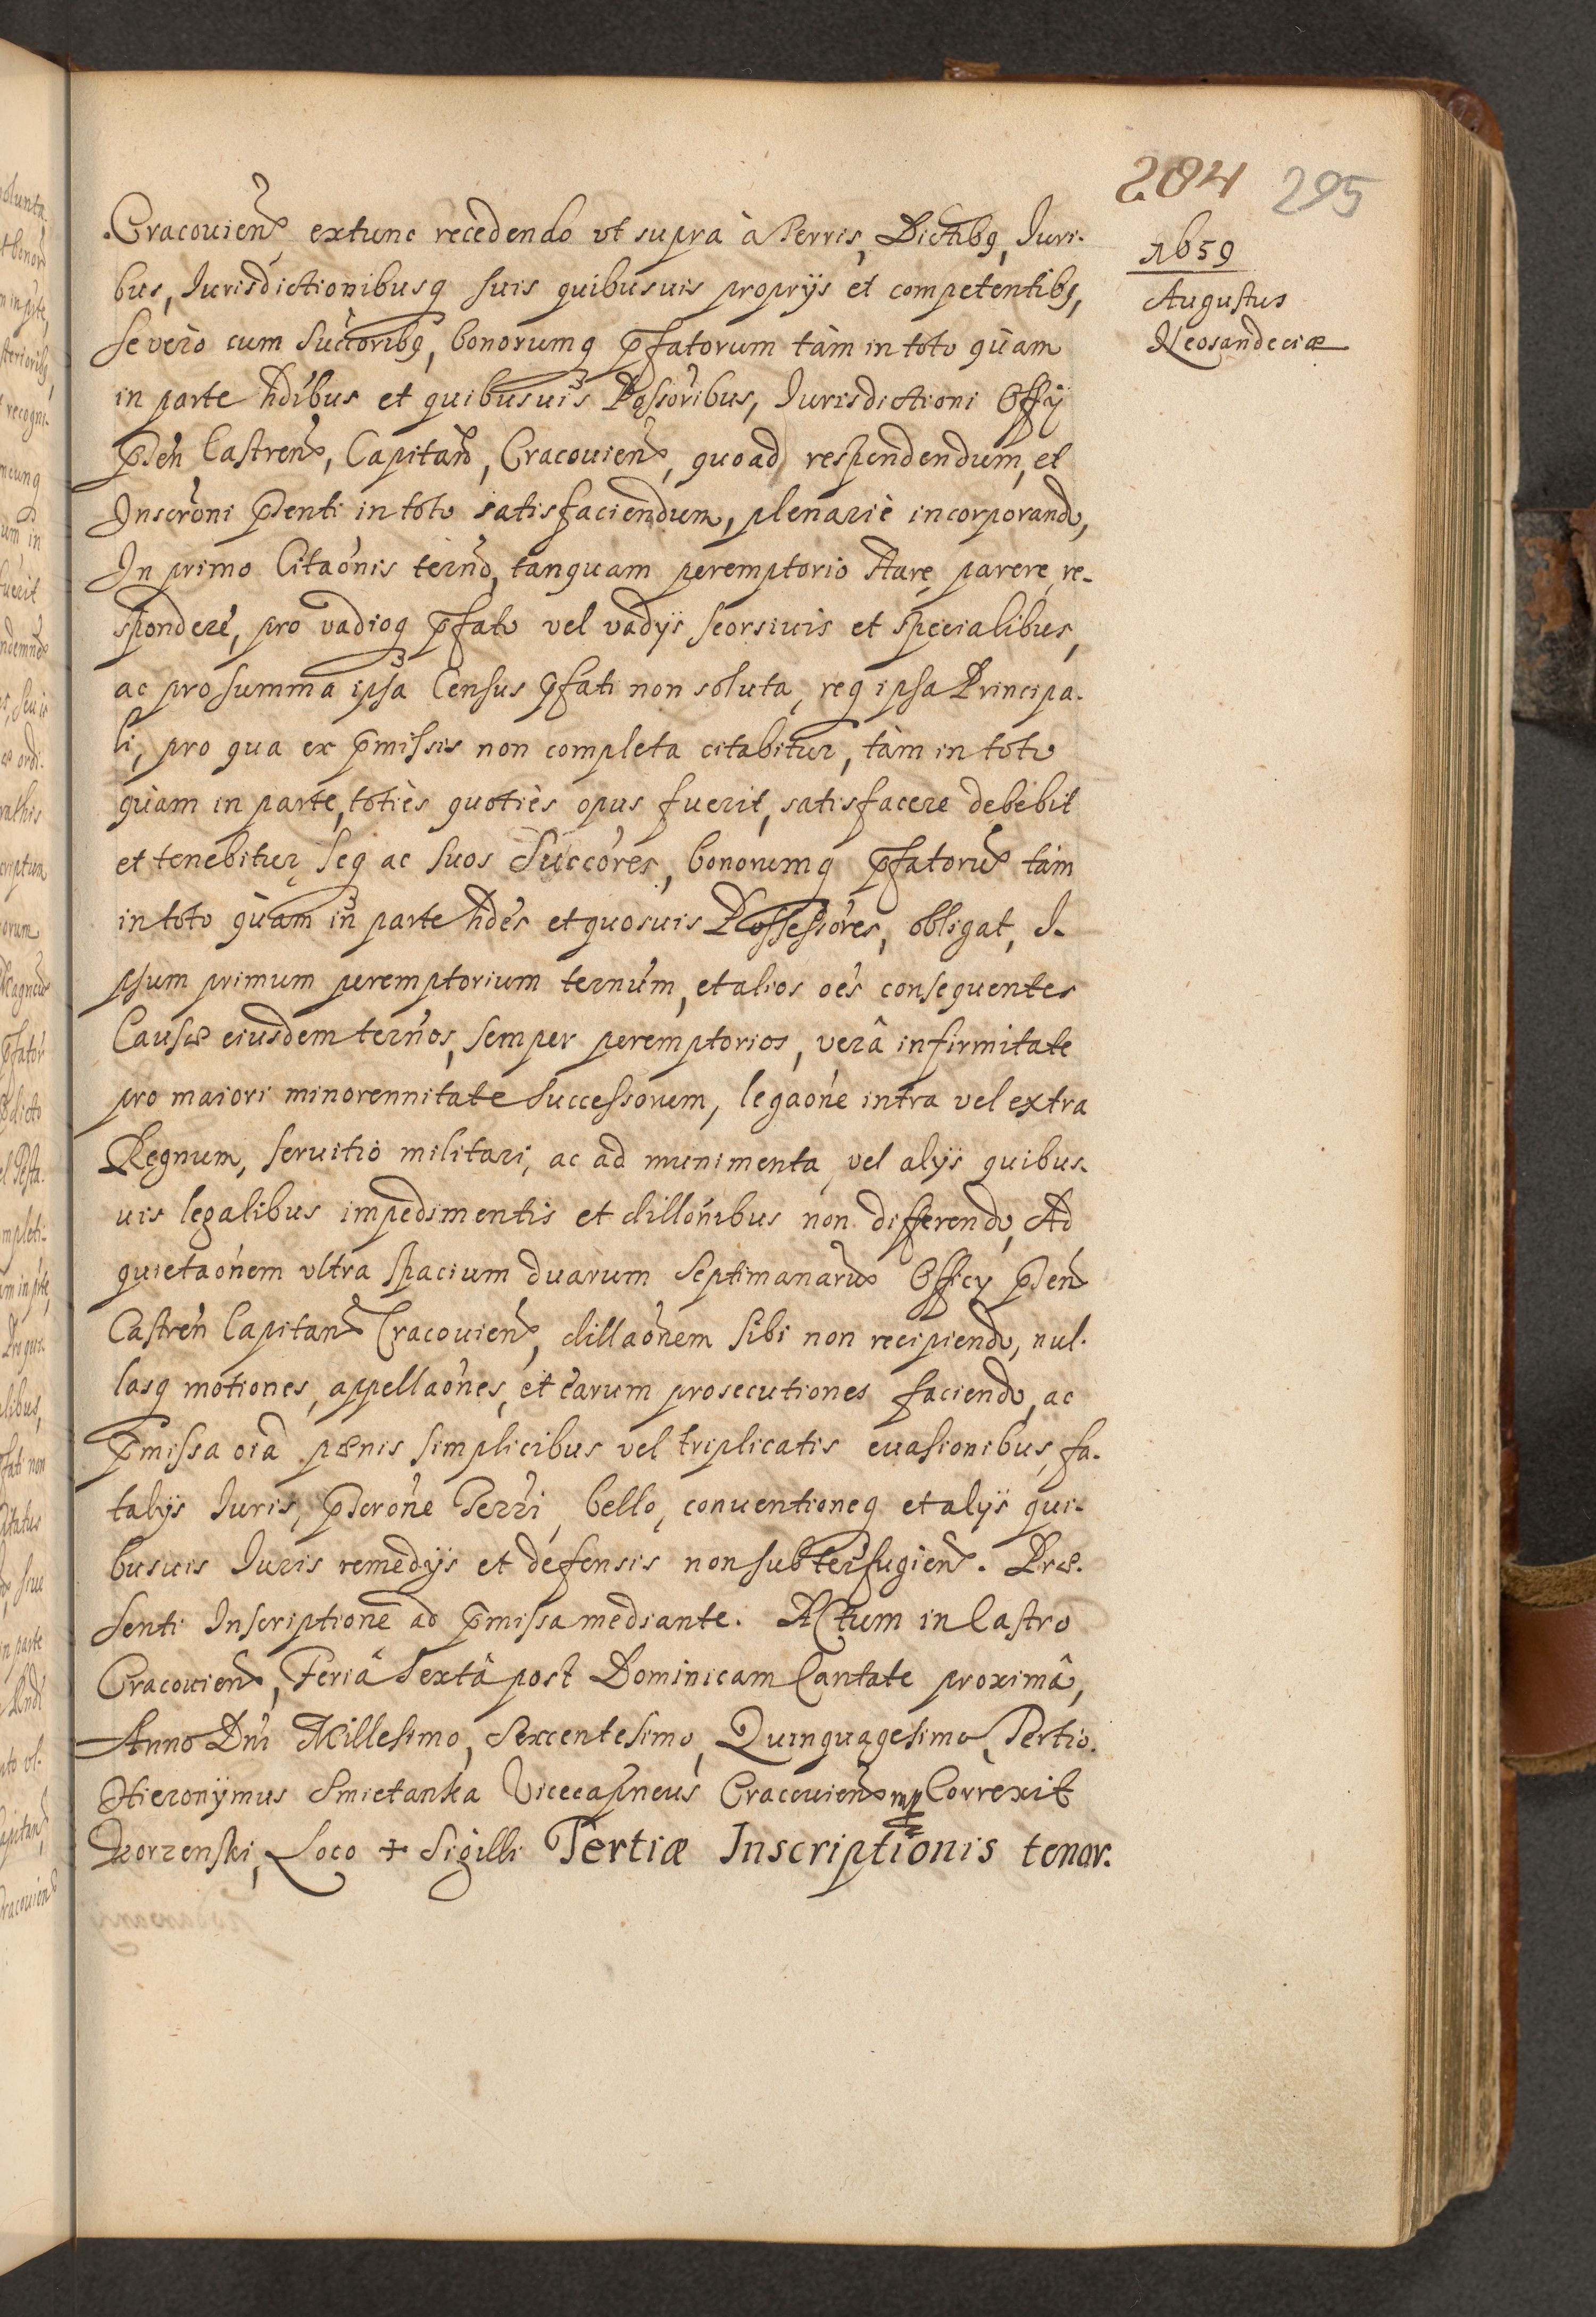 284 295
1659
Augustus
Neosandeciæ
Cracouien extunc recedendo vt supra à Terris, Dictibq, Iuri-
bus, Iurisdictionibusq suis quibusuis proprÿs et competentibq,
se verò cum Succoribq, bonorumq pfatorum tàm in toto quàm
in parte hdibus et quibusuis Possoribus, Iurisdictioni Offÿ
psen Castren, Capitan, Cracouien, quoad respondendum, et
Inscroni psenti in toto satisfaciendum, plenariè incorporando,
In primo Citaonis terno, tanquam peremptorio stare, parere, re-
spondere, pro vadioq pfato vel vadÿs seorsiuis et specialibus,
ac pro summa ipsa Census pfati non soluta, req ipsa Principa-
li, pro qua ex pmissis non completa citabitur, tàm in toto
quàm in parte, toties quoties opus fuerit, satisfacere debebit
et tenebitur, seq ac suos Succores, bonorumq pfatoru tàm
in toto quàm in parte hdes et quosuis Possessores, obligat, I-
psum primum peremptorium ternum, et alios oes consequentes
Causæ eiusdem ternos, semper peremptorios, verâ infirmitate
pro maiori minorennitate Successorum, legaone intra vel extra
Regnum, seruitio militari, ac ad munimenta, vel alÿs quibus-
uis legalibus impedimentis et dillonibus non differendo, Ad
quietaonem vltra spacium duarum Septimanaru Officy psen
Castren Capitan Cracouien, dillaonem sibi non recipiendo, nul-
lasq motiones, appellaones, et earum prosecutiones faciendo, ac
pmissa oia pœnis simplicibus vel triplicatis euasionibus, fa-
talÿs Iuris, pscrone Terri, bello, conuentioneq et alÿs qui-
busuis Iuris remedÿs et defensis non subterfugien. Præ-
senti Inscriptione ad pmissa mediante. Actum in Castro
Cracouien, Feriâ Sextâ post Dominicam Cantate proximâ,
Anno Dni Millesimo, Sexcentesimo, Quinquagesimo, Tertio.
Hieronÿmus Smietanka Vicecapneus Cracouien mp Correxit
Loco + Sigilli Tertiæ Inscriptionis tenor.